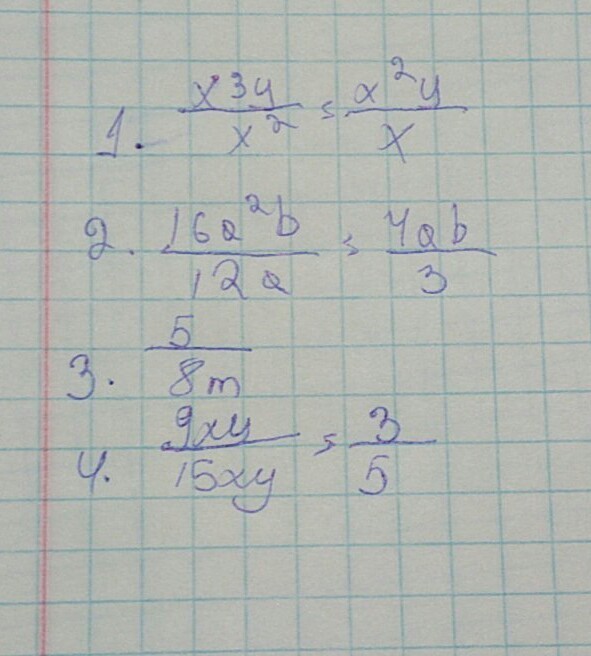 1. x³y/x² = x²y/x
2. 16a²b/12a = 4ab/3
3. 5/8m
4. 9xy/15xy = 3/5